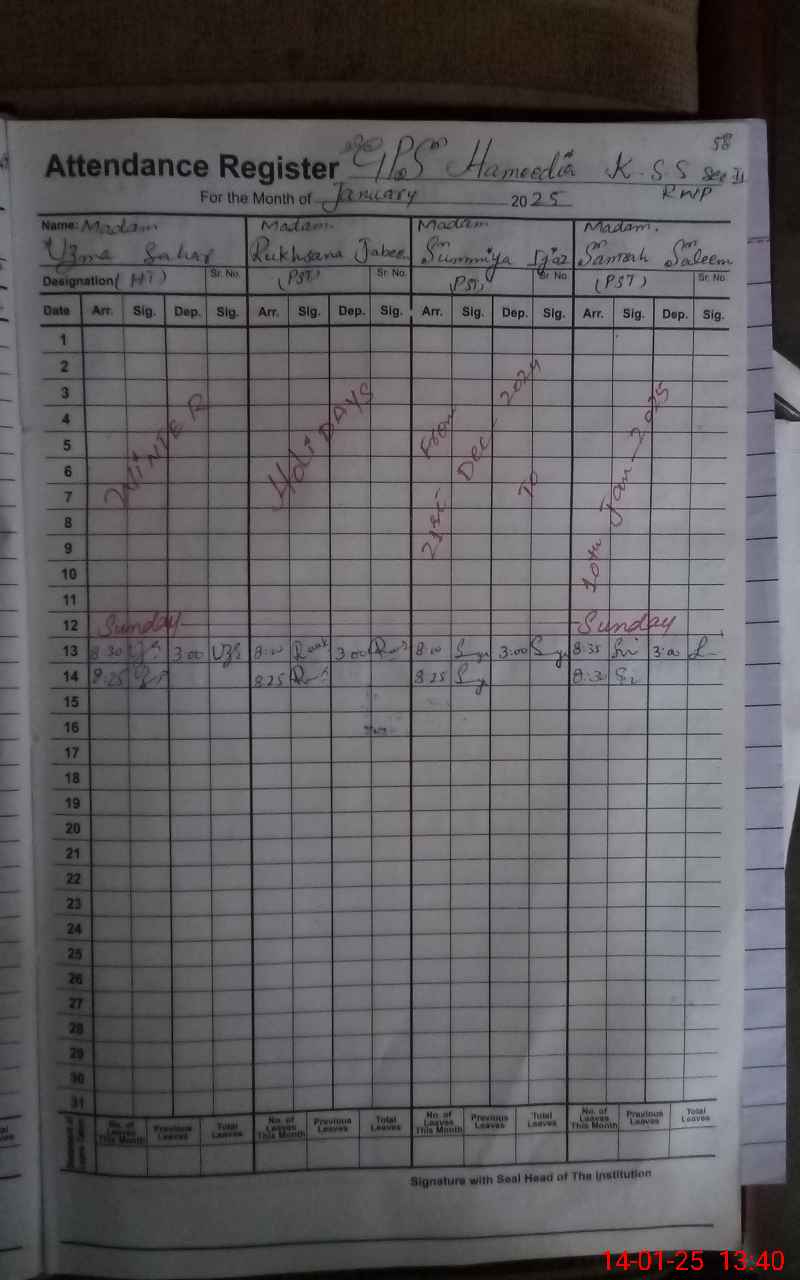 58
Attendance Register GPS Hameedia K.S.S Sec II
For the Month of January 2025 RWP
Name: Madam Madam. Madam Madam.
Uzma Sahar Rukhsana Jabee Summiya Ijaz Samarh Saleem
Designation (HT) Sr. No. (PST) Sr. No. (PST) Sr. No. (PST) Sr. No.
Date Arr. Sig. Dep. Sig. Arr. Sig. Dep. Sig. Arr. Sig. Dep. Sig. Arr. Sig. Dep. Sig.
1
2
3
4
5
6
7
8
9
10
11
WINTER HoliDAYS From 21st- Dec- 2024 To 10th Jan-2025
12 Sunday Sunday
13 8:30 3:00 UZS 8:10 3:00 8:10 3:00 8:35 3:00
14 8:25 8:25 8:25 8:30
15
16
17
18
19
20
21
22
23
24
25
26
27
28
29
30
31
No. of Leaves This Month Previous Leaves Total Leaves No. of Leaves This Month Previous Leaves Total Leaves No. of Leaves This Month Previous Leaves Total Leaves No. of Leaves This Month Previous Leaves Total Leaves
Signature with Seal Head of The Institution
14-01-25 13:40